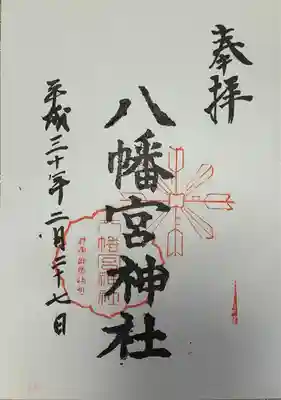 奉拝
八幡宮神社
平成三十年二月二十七日
八幡宮神社